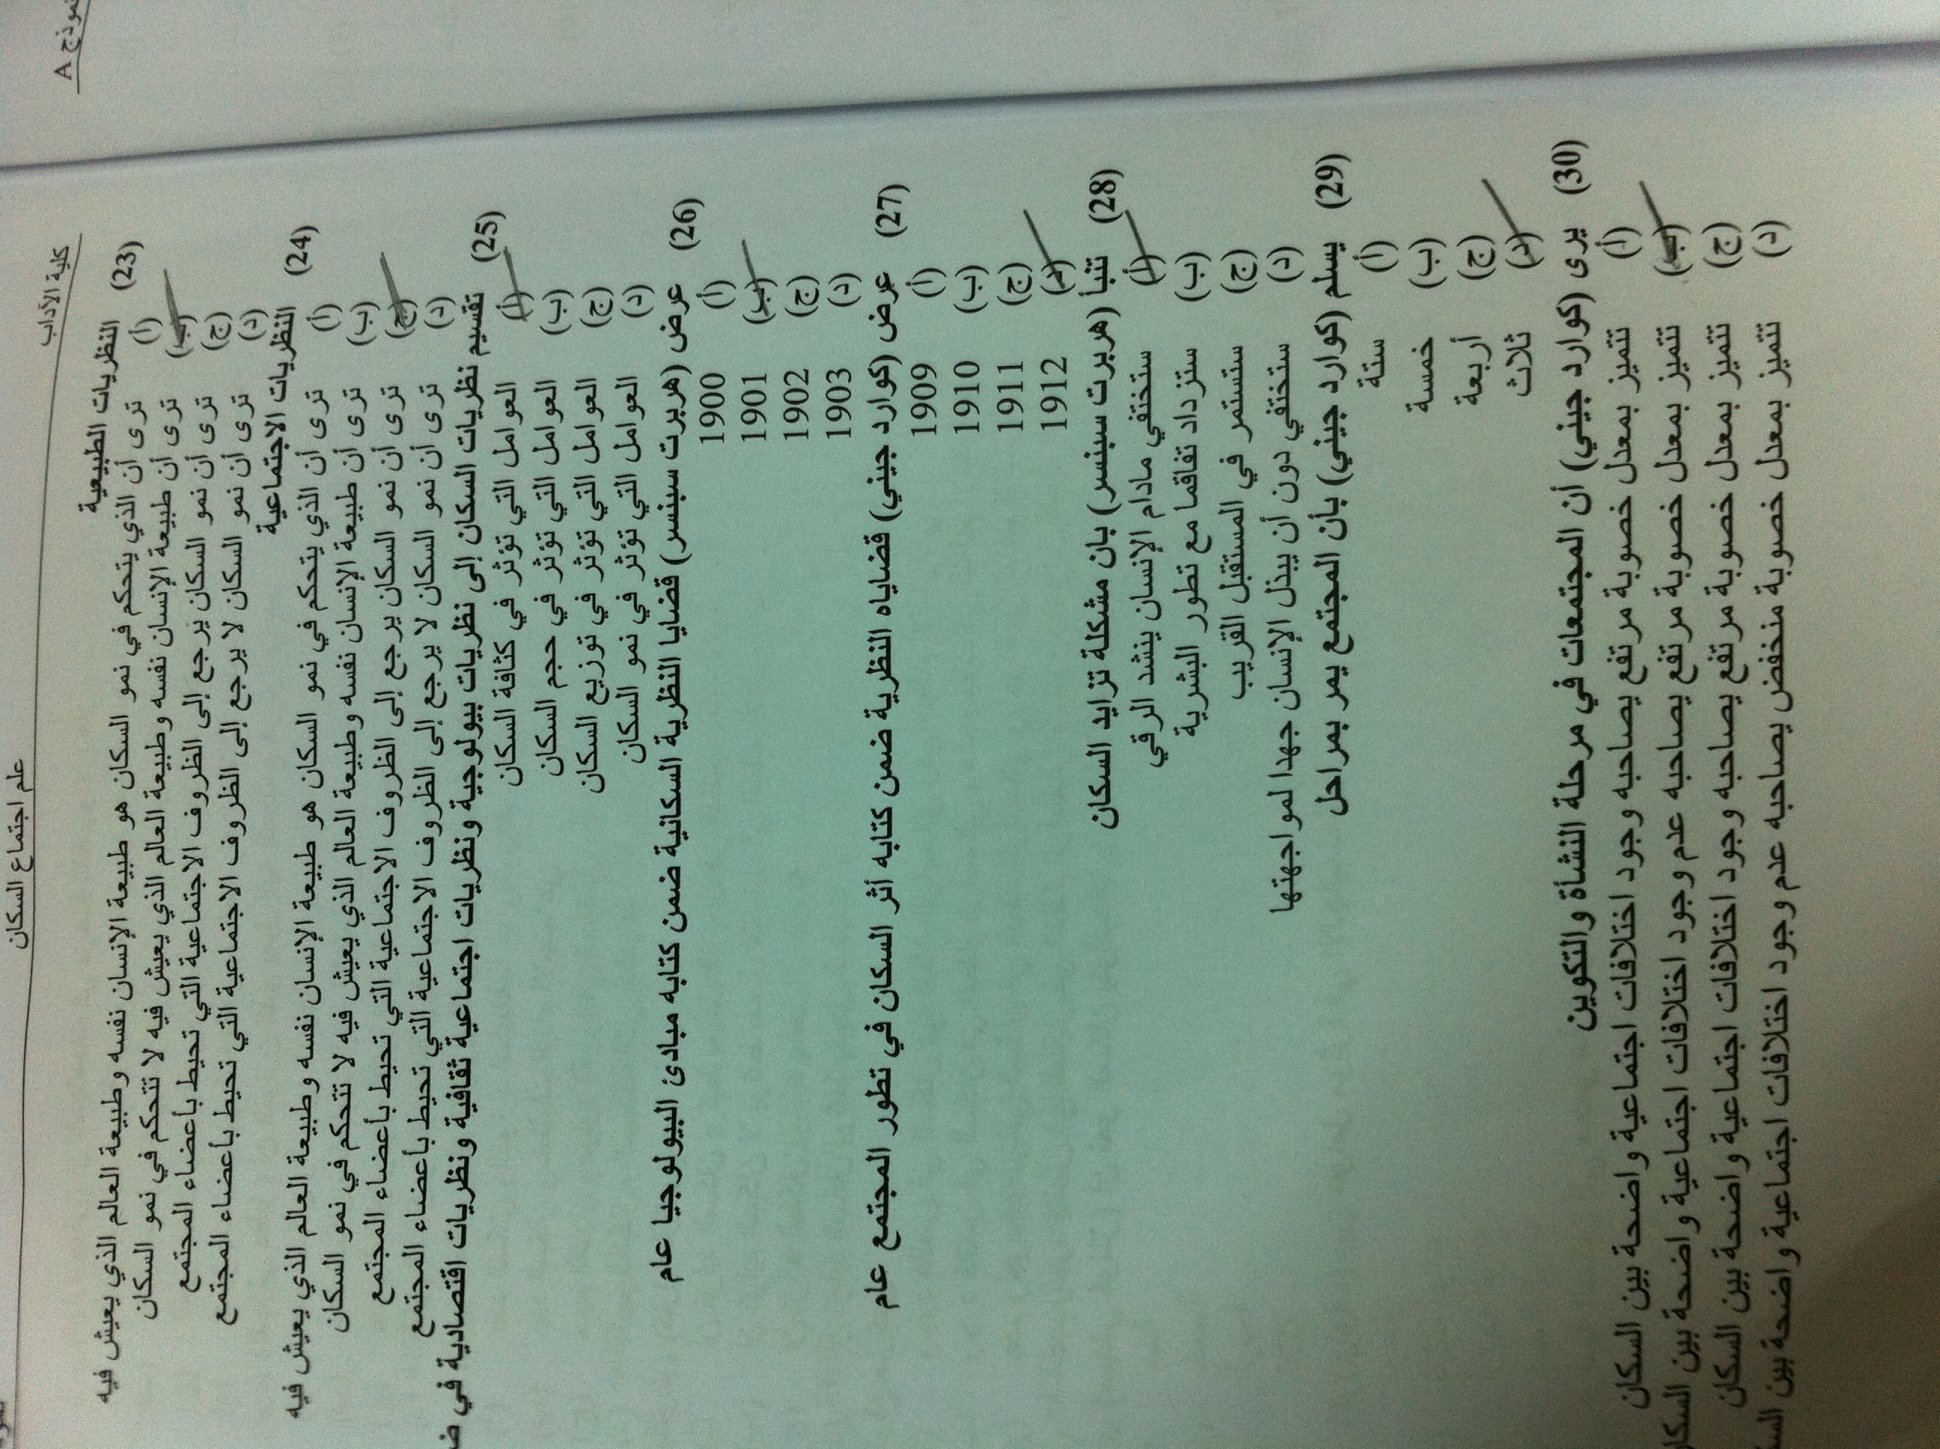 نموذج A
كلية الآداب
علم اجتماع السكان
(23) النظريات الطبيعية
(أ) ترى أن الذي يتحكم في نمو السكان هو طبيعة الإنسان نفسه وطبيعة العالم الذي يعيش فيه
(ب) ترى أن طبيعة الإنسان نفسه وطبيعة العالم الذي يعيش فيه لا تتحكم في نمو السكان
(ج) ترى أن نمو السكان يرجع إلى الظروف الاجتماعية التي تحيط بأعضاء المجتمع
(د) ترى أن نمو السكان لا يرجع إلى الظروف الاجتماعية التي تحيط بأعضاء المجتمع
(24) النظريات الاجتماعية
(أ) ترى أن الذي يتحكم في نمو السكان هو طبيعة الإنسان نفسه وطبيعة العالم الذي يعيش فيه
(ب) ترى أن طبيعة الإنسان نفسه وطبيعة العالم الذي يعيش فيه لا تتحكم في نمو السكان
(ج) ترى أن نمو السكان يرجع إلى الظروف الاجتماعية التي تحيط بأعضاء المجتمع
(د) ترى أن نمو السكان لا يرجع إلى الظروف الاجتماعية التي تحيط بأعضاء المجتمع
(25) تقسيم نظريات السكان إلى نظريات بيولوجية ونظريات اجتماعية ثقافية ونظريات اقتصادية في
(أ) العوامل التي تؤثر في كثافة السكان
(ب) العوامل التي تؤثر في حجم السكان
(ج) العوامل التي تؤثر في توزيع السكان
(د) العوامل التي تؤثر في نمو السكان
(26) عرض (هربرت سبنسر) قضايا النظرية السكانية ضمن كتابه مبادئ البيولوجيا عام
(أ) 1900
(ب) 1901
(ج) 1902
(د) 1903
(27) عرض (كوارد جيني) قضاياه النظرية ضمن كتابه أثر السكان في تطور المجتمع عام
(أ) 1909
(ب) 1910
(ج) 1911
(د) 1912
(28) تنبأ (هربرت سبنسر) بان مشكلة تزايد السكان
(أ) ستختفي مادام الإنسان ينشد الرقي
(ب) ستزداد تفاقما مع تطور البشرية
(ج) ستستمر في المستقبل القريب
(د) ستختفي دون أن يبذل الإنسان جهدا لمواجهتها
(29) يسلم (كوارد جيني) بأن المجتمع يمر بمراحل
(أ) ستة
(ب) خمسة
(ج) أربعة
(د) ثلاث
(30) يرى (كوارد جيني) أن المجتمعات في مرحلة النشأة والتكوين
(أ) تتميز بمعدل خصوبة مرتفع يصاحبه وجود اختلافات اجتماعية واضحة بين السكان
(ب) تتميز بمعدل خصوبة مرتفع يصاحبه عدم وجود اختلافات اجتماعية واضحة بين السكان
(ج) تتميز بمعدل خصوبة مرتفع يصاحبه وجود اختلافات اجتماعية واضحة بين السكان
(د) تتميز بمعدل خصوبة منخفض يصاحبه عدم وجود اختلافات اجتماعية واضحة بين